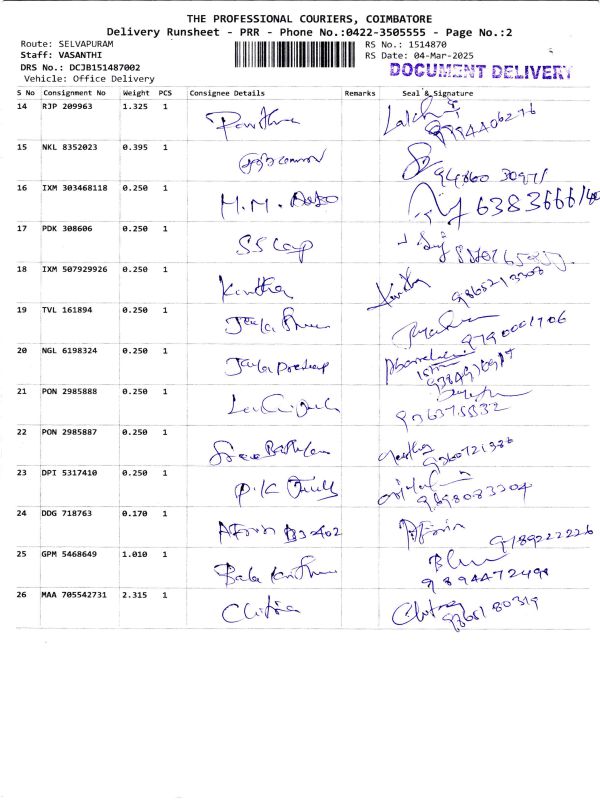 THE PROFESSIONAL COURIERS, COIMBATORE
Delivery Runsheet - PRR - Phone No.:0422-3505555 - Page No.:2
Route: SELVAPURAM RS No.: 1514870
Staff: VASANTHI RS Date: 04-Mar-2025
DRS No.: DCJB151487002 DOCUMENT DELIVERY
Vehicle: Office Delivery
S No Consignment No Weight PCS Consignee Details Remarks Seal & Signature
14 RJP 209963 1.325 1
9994406276
15 NKL 8352023 0.395 1
94860 30971
16 IXM 303468118 0.250 1 M.M.
17 PDK 308606 0.250 1 SS Corp
18 IXM 507929926 0.250 1 Kavitha Kavitha
9865213303
19 TVL 161894 0.250 1
9790001706
20 NGL 6198324 0.250 1 Pradeep
21 PON 2985888 0.250 1
22 PON 2985887 0.250 1
9360721386
23 DPI 5317410 0.250 1 P.K
9698083304
24 DDG 718763 0.170 1 Afrin B3-402 Afrin
9789222226
25 GPM 5468649 1.010 1 Bala
9894472498
26 MAA 705542731 2.315 1 Chitra Chitra
9865180319